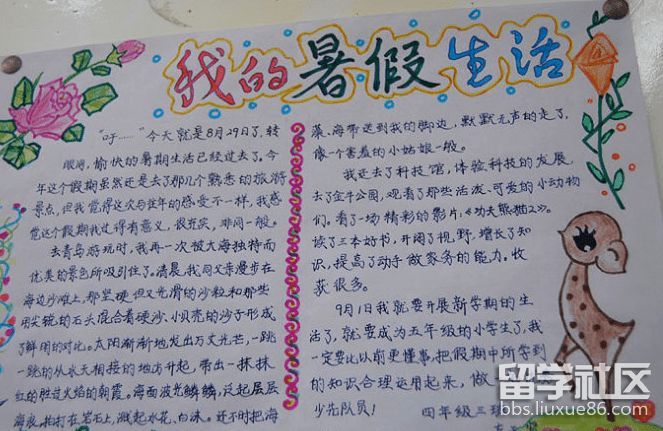 我的暑假生活
“哼……”今天就是8月29日了,转
眼间,愉快的暑期生活已经过去了。今
年这个假期虽然还是去了那几个熟悉的旅游
景点,但我觉得这次与往年的感受不一样,我感
觉这个假期我过得有意义,很充实,非同一般。
去青岛游玩时,我再一次被大海独特而
优美的景色所吸引住了。清晨,我同父亲漫步在
海边沙滩上,那坚硬但又光滑的沙粒和那些
用尖锐的石头混合着硬沙、小贝壳的沙子形成
了鲜明的对比。太阳渐渐地发出万丈光芒,一跳
一跳的从水天相接的地方升起,带出一抹抹
红的胜过火焰的朝霞。海面波光鳞鳞,泛起层层
海浪,拍打在岩石上,溅起水花、白沫。还不时把海
藻、海带送到我的脚边,默默无声的走了,
像一个害羞的小姑娘一般。
我还去了科技馆,体验科技的发展,
去了金牛公园,观看了那些活泼、可爱的小动物
们。看了一场精彩的影片,《功夫熊猫2》。
读了三本好书,开阔了视野,增长了知
识,提高了动手做家务的能力。收
获很多。
9月1日我就要开展新学期的生
活了,就要成为五年级的小学生了,我
一定要比以前更懂事,把假期中所学到
的知识合理运用起来,做
少先队员!
四年级三班
留学社区
bbs.liuxue86.com